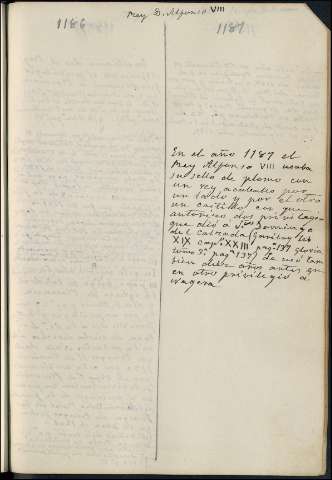 Rey D. Alfonso VIII
1186
1187
En el año 1187 el
Rey Alfonso VIII usaba
su sello de plomo con
un rey a caballo por
un lado y por el otro
un castillo con que
autorizó dos privilegios
que dió a Sto. Domingo
de la Calzada (Garibay lib
XIX cap.º XXIII pag.ª 137
tomo 2.º pag.ª 137) Le usó tam
bien diez años antes que
en otro privilegio a
Nagera